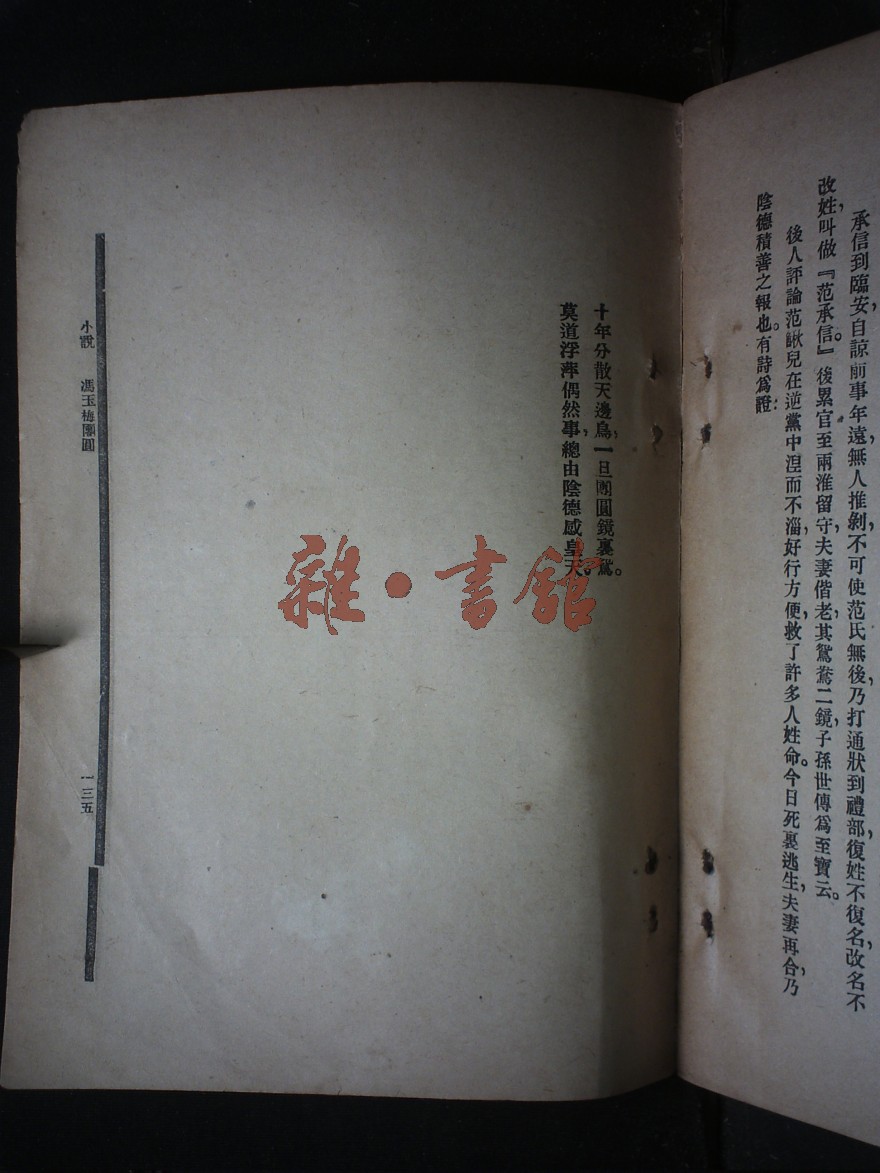 承信到臨安自諒前事年遠,無人推剝,不可使范氏無後,乃打通狀到禮部,復姓不復名,改名不
改姓,叫做『范承信』。後累官至兩淮留守,夫妻偕老,其鴛鴦二鏡,子孫世傳爲至寶云。
後人評論范鰍兒在逆黨中涅而不淄,好行方便,救了許多人姓命。今日死裏逃生,夫妻再合,乃
陰德積善之報也。有詩爲證:
十年分散天邊鳥,一旦團圓鏡裏鴛。
莫道浮萍偶然事,總由陰德感皇天。
小說 馮玉梅團圓
一三五
雜·書館